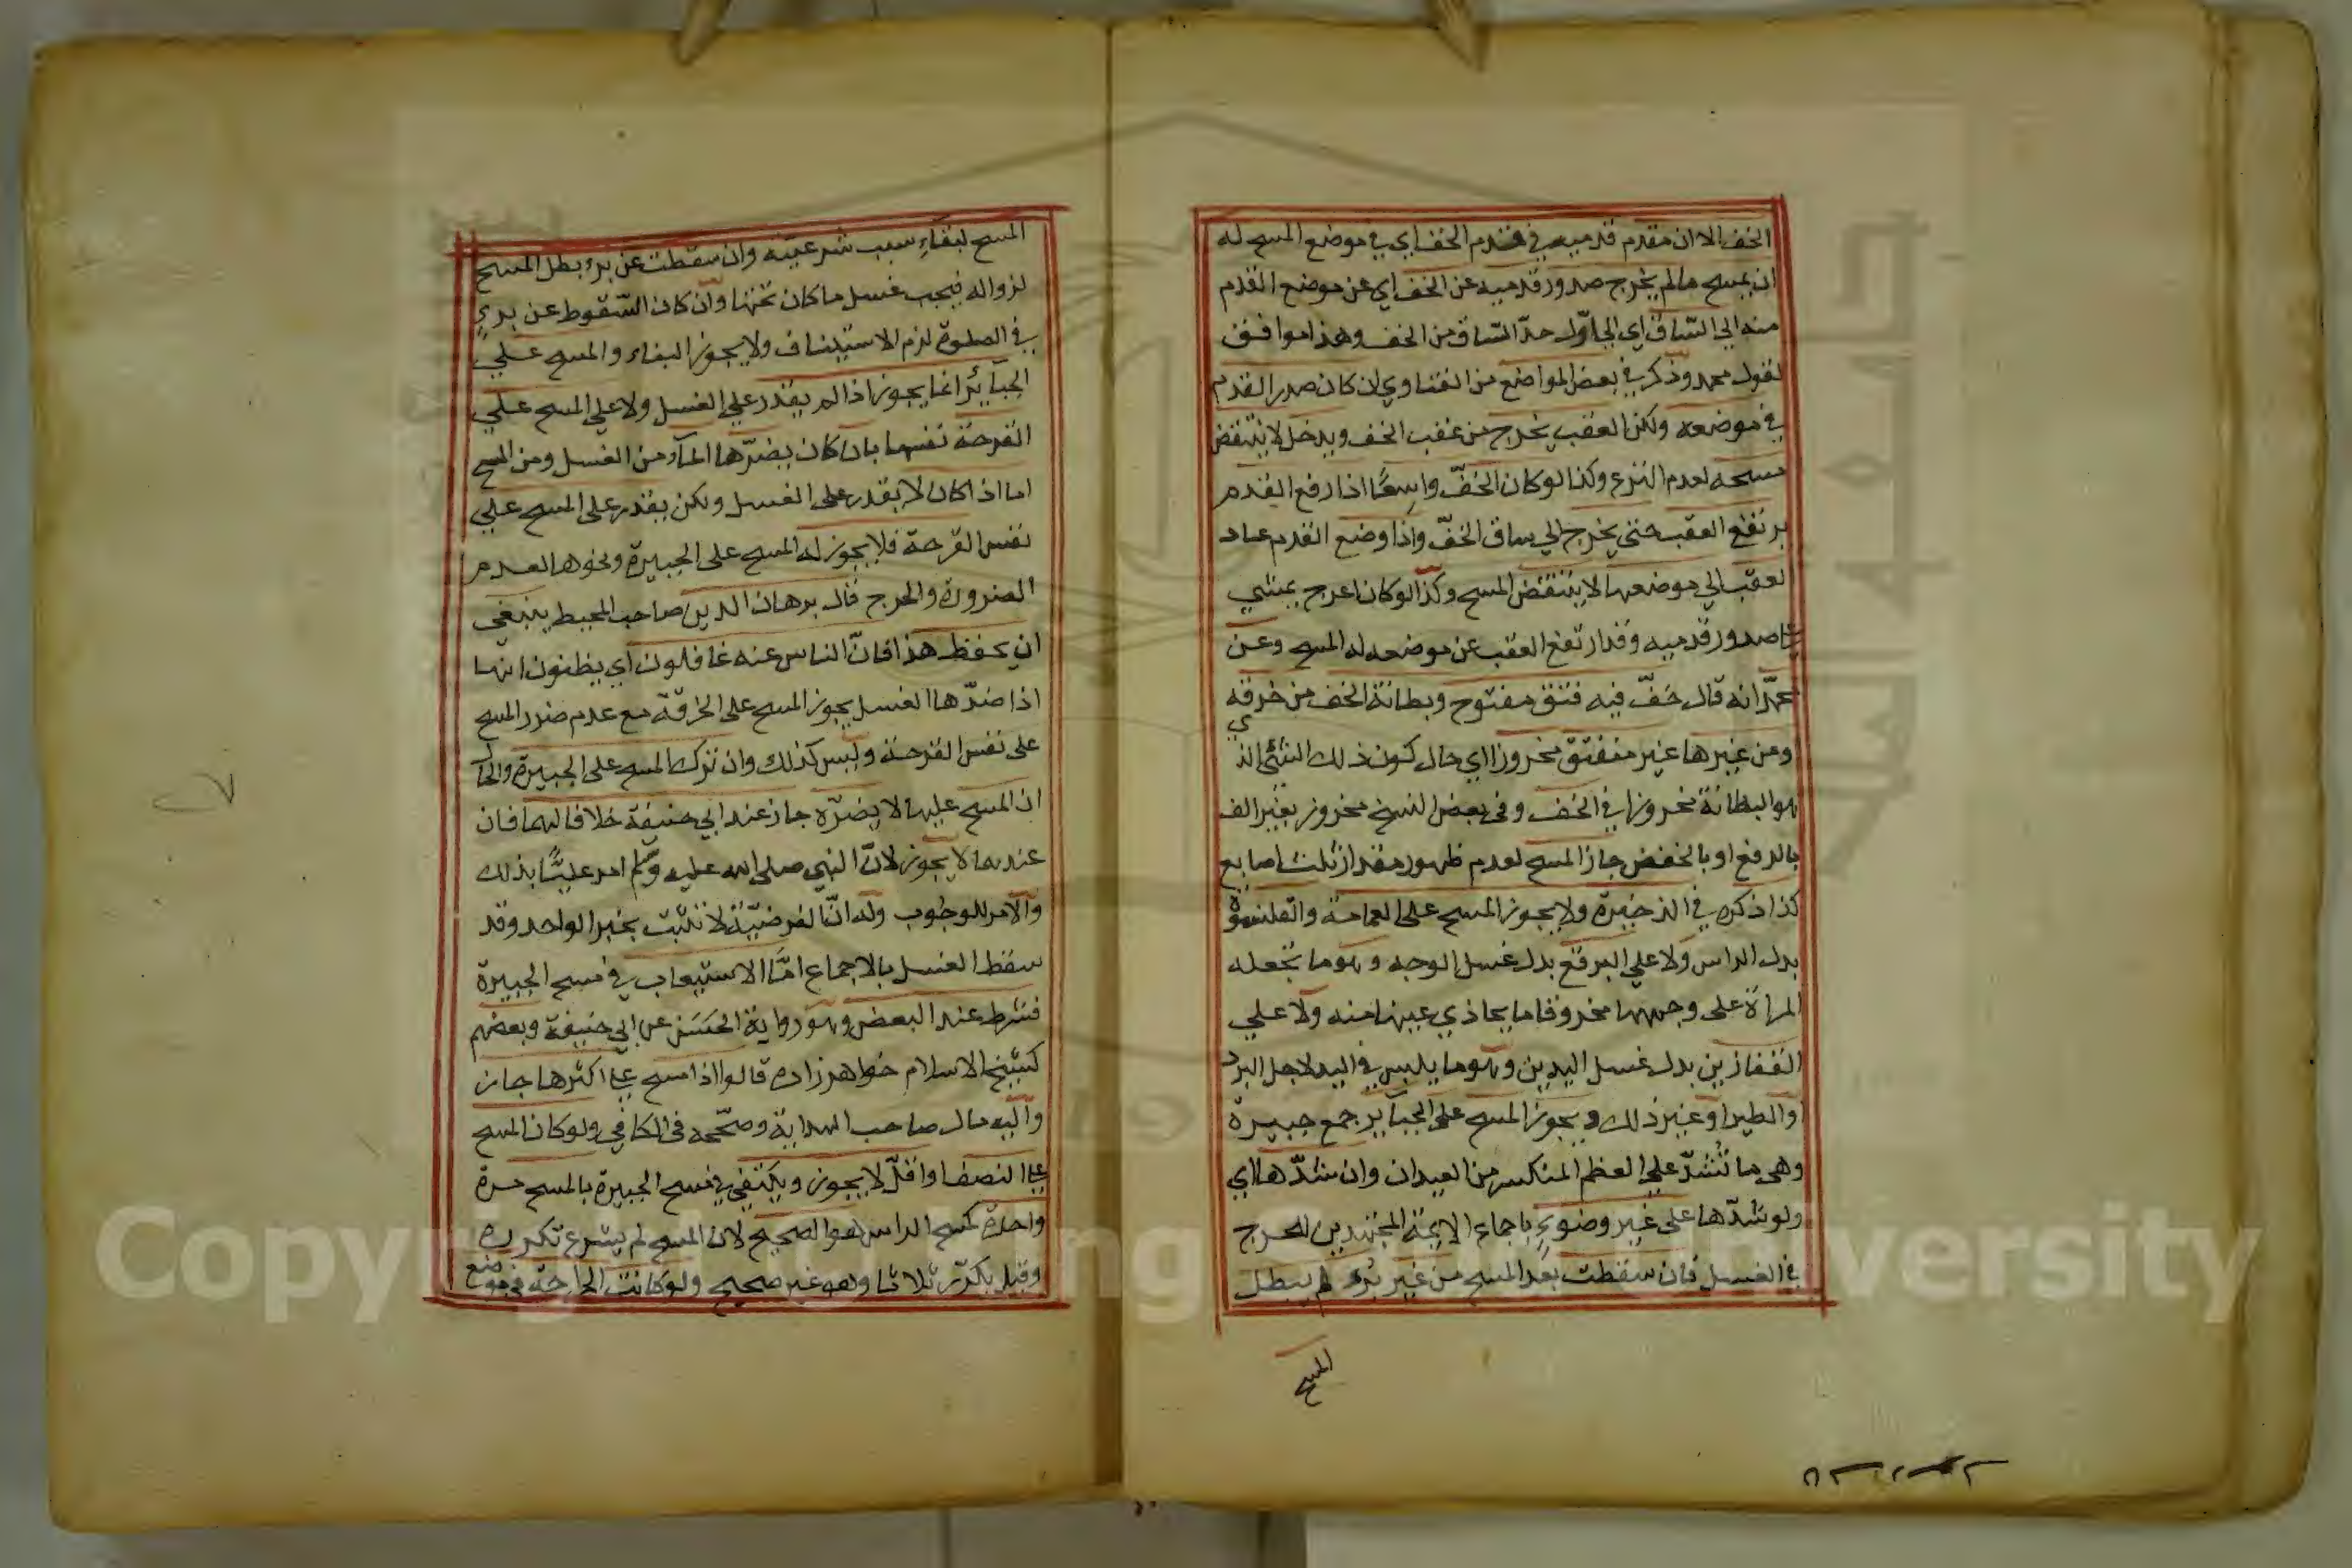 الخف الا ان مقدم قدميه في مقدم الخف اي في موضع المسح له
ان يمسح مالم يخرج صدور قدميه عن الخف اي عن موضع القدم
منه الي الساق اي الي اول حد الساق من الخف وهذا موافق
لقول محمد وذكر في بعض المواضع من الفتاوي ان كان صدر القدم
في موضعه ولكن العقب يخرج من عقب الخف ويدخل لا ينتقض
مسحه لعدم النزع وكذا لو كان الخفّ واسعًا اذا رفع القدم
يرتفع العقب حتى يخرج الي ساق الخفّ واذا وضع القدم عاد
العقب الي موضعها لا ينتقض المسح وكذا لو كان اعرج يمشي
على صدور قدميه وقد ارتفع العقب عن موضعه له المسح وعن
محمّد انه قال خفّ فيه فتق مفتوح وبطانة الخف من خرقه
ومن غيرها غير منفتق مخروزا اي حال كون ذلك الشئ الذي
هو البطانة مخروزا في الخف وفي بعض النسخ مخروز بغير الف
بالرفع او بالخفض جاز المسح لعدم ظهور مقدار ثلث اصابع
كذا ذكره في الذخيرة ولا يجوز المسح على العمامة والقلنسوة
بدل الراس ولا علي البرقع بدل غسل الوجه وهو ما تجعله
المراة على وجهها مخروقا ما يحاذي عينها منه ولا علي
القفازين بدل غسل اليدين وهو ما يلبس في اليد لاجل البرد
او الطير او غير ذلك ويجوز المسح على الجبآير جمع جبيرة
وهي ما تُشدّ علي العظم المنكسر من العيدان وان شدّها اي
ولو شدّها على غير وضوء باجماع الايمة المجتهدين للحرج
في الغسل فان سقطت بعد المسح من غير برء لم يبطل
المسح
المسح لبقاء سبب شرعيته وان سقطت عن برء بطل المسح
لزواله فيجب غسل ما كان تحتها وان كان السّقوط عن برء
في الصلوة لزم الاستيناف ولا يجوز البناء والمسح علي
الجبآئر انما يجوز اذا لم يقدر علي الغسل ولا علي المسح علي
القرحة نفسها بان كان يضرّها المآء من الغسل ومن المسح
اما اذا كان لا يقدر على الغسل ولكن يقدر على المسح علي
نفس القرحة فلا يجوز له المسح على الجبيرة ونحوها لعدم
الضرورة والحرج قال برهان الدين صاحب المحيط ينبغي
ان يحفظ هذا فانّ الناس عنه غافلون اي يظنون انها
اذا ضرّها الغسل يجوز المسح على الخرقة مع عدم ضرر المسح
على نفس القرحة وليس كذلك وان ترك المسح على الجبيرة والحال
ان المسح عليها لا يضرّه جاز عند ابي حنيفة خلافا لهما فان
عندهما لا يجوز لانّ النبي صلى الله عليه وسلم امر عليًّا بذلك
والامر للوجوب وله انّ الفرضيّة لا تثبت بخبر الواحد وقد
سقط الغسل بالاجماع امّا الاستيعاب في مسح الجبيرة
فشرط عند البعض وهو رواية الحسن عن ابي حنيفة وبعضهم
كشيخ الاسلام خواهر زاده قالوا اذا مسح على اكثرها جاز
واليه مال صاحب الهداية وصحّحه في الكافي ولو كان المسح
على النصف او اقلّ لا يجوز ويكتفي في مسح الجبيرة بالمسح مرة
واحدة كمسح الراس هو الصحيح لان المسح لم يشرع تكرره
وقيل يكرّر ثلاثا وهو غير صحيح ولو كانت الجراحة في موضع
Copyright © King Saud University